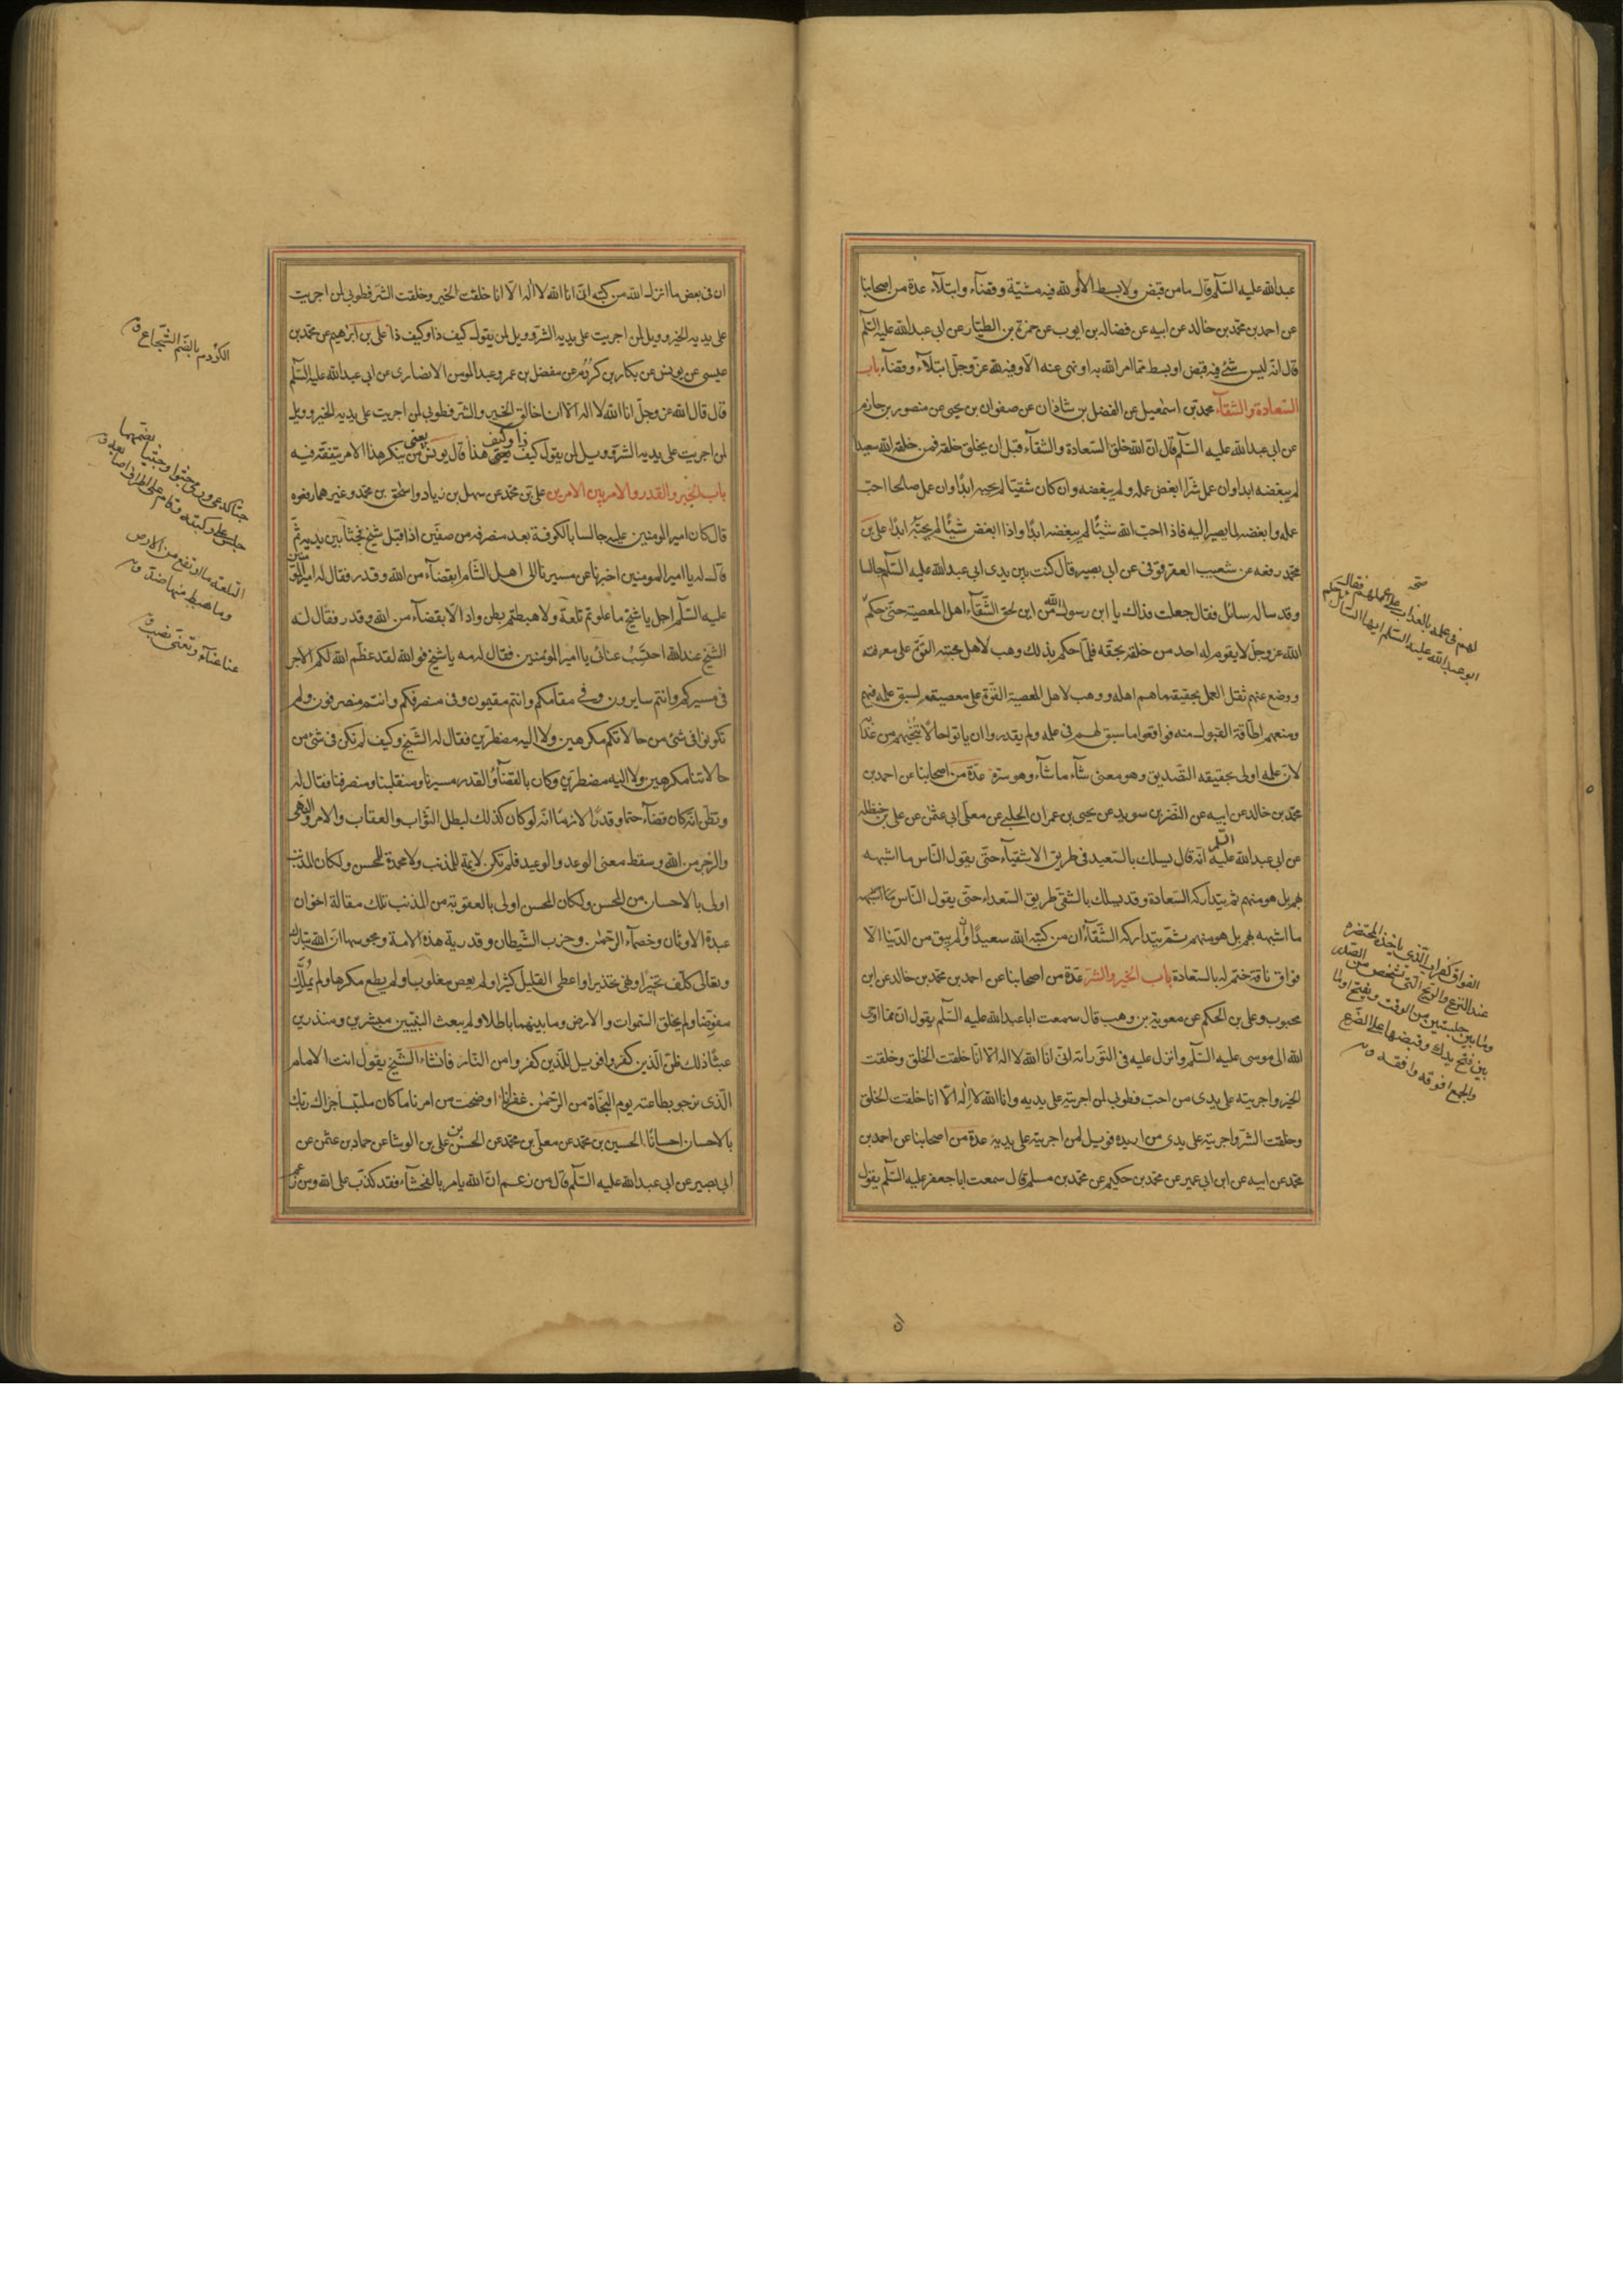 عبدالله عليه السّلم قال ما من قبض ولا بسط الا ولله فيه مشيّة وقضاء وابتلاء عدة من اصحابنا
عن احمد بن محمّد بن خالد عن ابيه عن فضاله بن ايوب عن حمزة بن الطيّار عن ابى عبدالله عليه السّلم
قال انّه ليس شئ فيه قبض او بسط ممّا امر الله به او نهى عنه الّا وفيه لله عزّ وجلّ ابتلاء وقضاء باب
السّعادة والشّقاء محمّد بن اسمعيل عن الفضل بن شاذان عن صفوان بن يحيى عن منصور بن حازم
عن ابى عبدالله عليه السّلم قال انّ الله خلق السّعادة والشّقاء قبل ان يخلق خلقه فمن خلقه الله سعيدا
لم يبغضه ابدا وان عمل شرّا ابغض عمله ولم يبغضه وان كان شقيّا لم يحبه ابدًا وان عمل صالحا احبّ
عمله وابغضه لما يصير اليه فاذا احبّ الله شيئًا لم يبغضه ابدًا واذا ابغض شيئًا لم يحبّه ابدًا على بن
محمّد رفعه عن شعيب العقرقوفى عن ابى بصير قال كنت بين يدى ابى عبدالله عليه السّلم جالسا
وقد ساله سائل فقال جعلت فداك يا ابن رسول الله من اين لحق الشّقاء اهل المعصية حتّى حكم
لهم فى علمه بالعذاب على عملهم فقال
ابو عبدالله عليه السّلم ايها السّائل حكم
الله عزّ وجلّ لا يقوم له احد من خلقه بحقّه فلمّا حكم بذلك وهب لاهل محبته القوّة على معرفته
ووضع عنهم ثقل العمل بحقيقة ما هم اهله ووهب لاهل المعصية القوّة على معصيتهم لسبق علمه فيهم
ومنعهم اطاقة القبول منه فواقعوا ما سبق لهم فى علمه ولم يقدروا ان ياتوا حالًا تنجيهم من عذابه
لانّ علمه اولى بحقيقه التّصديق وهو معنى شاء ما شاء وهو سرّه عدّة من اصحابنا عن احمد بن
محمّد بن خالد عن ابيه عن النّضر بن سويد عن يحيى بن عمران الحلبى عن معلّى ابى عثمٰن عن على بن حنظله
عن ابى عبدالله عليه السّلم انّه قال يسلك بالسّعيد فى طريق الاشقياء حتّى يقول النّاس ما اشبهه
بهم بل هو منهم ثم يتداركه السّعادة وقد يسلك بالشقىّ طريق السّعداء حتّى يقول النّاس
ما اشبهه بهم بل هو منهم ثمّ يتداركه الشّقاء ان من كتبه الله سعيدًا وان لم يبق من الدّنيا الا
فواق ناقة ختم له بالسّعادة باب الخير والشّر عدّة من اصحابنا عن احمد بن محمّد بن خالد عن ابن
محبوب وعلى بن الحكم عن معوية بن وهب قال سمعت ابا عبدالله عليه السّلم يقول انّ ممّا اوحى
الله الى موسى عليه السّلم وانزل عليه فى التّورٰية انّى انا الله لا اله الّا انا خلقت الخلق وخلقت
الخير واجريته على يدى من احب فطوبى لمن اجريته على يديه وانا الله لا اله الّا انا خلقت الخلق
وخلقت الشرّ واجريته على يدى من اريده فويل لمن اجريته على يديه عدة من اصحابنا عن احمد بن
محمّد عن ابيه عن ابن ابى عمير عن محمّد بن حكيم عن محمّد بن مسلم قال سمعت ابا جعفر عليه السّلم يقول
الفواق كغراب الّذى ياخذ المحتضر
عند النزع والريح التى تشخص من الصّدر
وما بين حلبتين من الوقت ويفتح او ما
بين فتح يدك وقبضها على الضّرع
والجمع افوقه وافقه
ان فى بعض ما انزل الله من كتبه انّى انا الله لا اله الّا انا خلقت الخير وخلقت الشّر فطوبى لمن اجريت
على يديه الخير وويل لمن اجريت على يديه الشرّ وويل لمن يقول كيف ذا وكيف ذا على بن ابرٰهيم عن محمّد بن
عيسى عن يونس عن بكار بن كردم عن مفضل بن عمر وعبد المومن الانصارى عن ابى عبدالله عليه السّلم
قال قال الله عزّ وجلّ انا الله لا اله الّا انا خالق الخير والشّر فطوبى لمن اجريت على يديه الخير وويل
لمن اجريت على يديه الشرّ وويل لمن يقول كيف ذا وكيف هذا قال يونس يعنى من ينكر هذا الامر بتفقه فيه
باب الجبر والقدر والامر بين الامرين على بن محمّد عن سهل بن زياد واسحٰق بن محمّد وغيرهما رفعوه
قال كان امير المومنين عليه جالسا بالكوفة بعد منصرفه من صفّين اذ اقبل شيخ فجثا بين يديه ثمّ
قال له يا امير المومنين اخبرنا عن مسيرنا الى اهل الشّام ابقضاء من الله وقدر فقال له امير المومنين
عليه السّلم اجل يا شيخ ما علوتم تلعة ولا هبطتم بطن واد الّا بقضاء من الله وقدر فقال له
الشّيخ عند الله احتسب عنائى يا امير المؤمنين فقال له مه يا شيخ فوالله لقد عظّم الله لكم الاجر
فى مسيركم وانتم سايرون وفى مقامكم وانتم مقيمون وفى منصرفكم وانتم منصرفون ولم
تكونوا فى شئ من حالاتكم مكرهين ولا اليه مضطرّين فقال له الشّيخ وكيف لم نكن فى شئ من
حالاتنا مكرهين ولا اليه مضطرّين وكان بالقضاء والقدر مسيرنا ومنقلبنا ومنصرفنا فقال له
وتظنّ انّه كان قضاء حتما وقدرًا لازمًا انّه لو كان كذلك لبطل الثّواب والعقاب والامر والنهى
والزّجر من الله وسقط معنى الوعد والوعيد فلم تكن لايمة للمذنب ولا محمدة للمحسن ولكان المذنب
اولى بالاحسان من المحسن ولكان المحسن اولى بالعقوبة من المذنب تلك مقالة اخوان
عبدة الاوثان وخصماء الرّحمٰن وحزب الشّيطان وقدرية هذه الامة ومجوسها انّ الله تبارك
وتعالى كلّف تخييرًا ونهى تحذيرا واعطى القليل كثيرا ولم يعص مغلوبا ولم يطع مكرها ولم يملّك
مفوّضا ولم يخلق السّموات والارض وما بينهما باطلا ولم يبعث النّبيّين مبشرين ومنذرين
عبثًا ذلك ظنّ الّذين كفروا فويل للّذين كفروا من النّار فانشاء الشّيخ يقول انت الامام
الّذى نرجو بطاعته يوم النّجاة من الرّحمٰن غفرانا اوضحت من امرنا ما كان ملتبسًا جزاك ربّك
بالاحسان احسانًا الحسين بن محمّد عن معلّى بن محمّد عن الحسن بن على بن الوشا عن حماد بن عثمٰن عن
ابى بصير عن ابى عبدالله عليه السّلم قال من زعم انّ الله يامر بالفحشاء فقد كذّب على الله ومن زعم
الكردم بالضّم الشّجاع ق
جثا كدعى ورمى جثوا وجثيا بضمّهما
جلس على ركبتيه وقام على اطراف اصابعه ق
التلعه ما ارتفع من الارض
وما هبط منها ضد
عنا عناء وتعنّى نصب ق